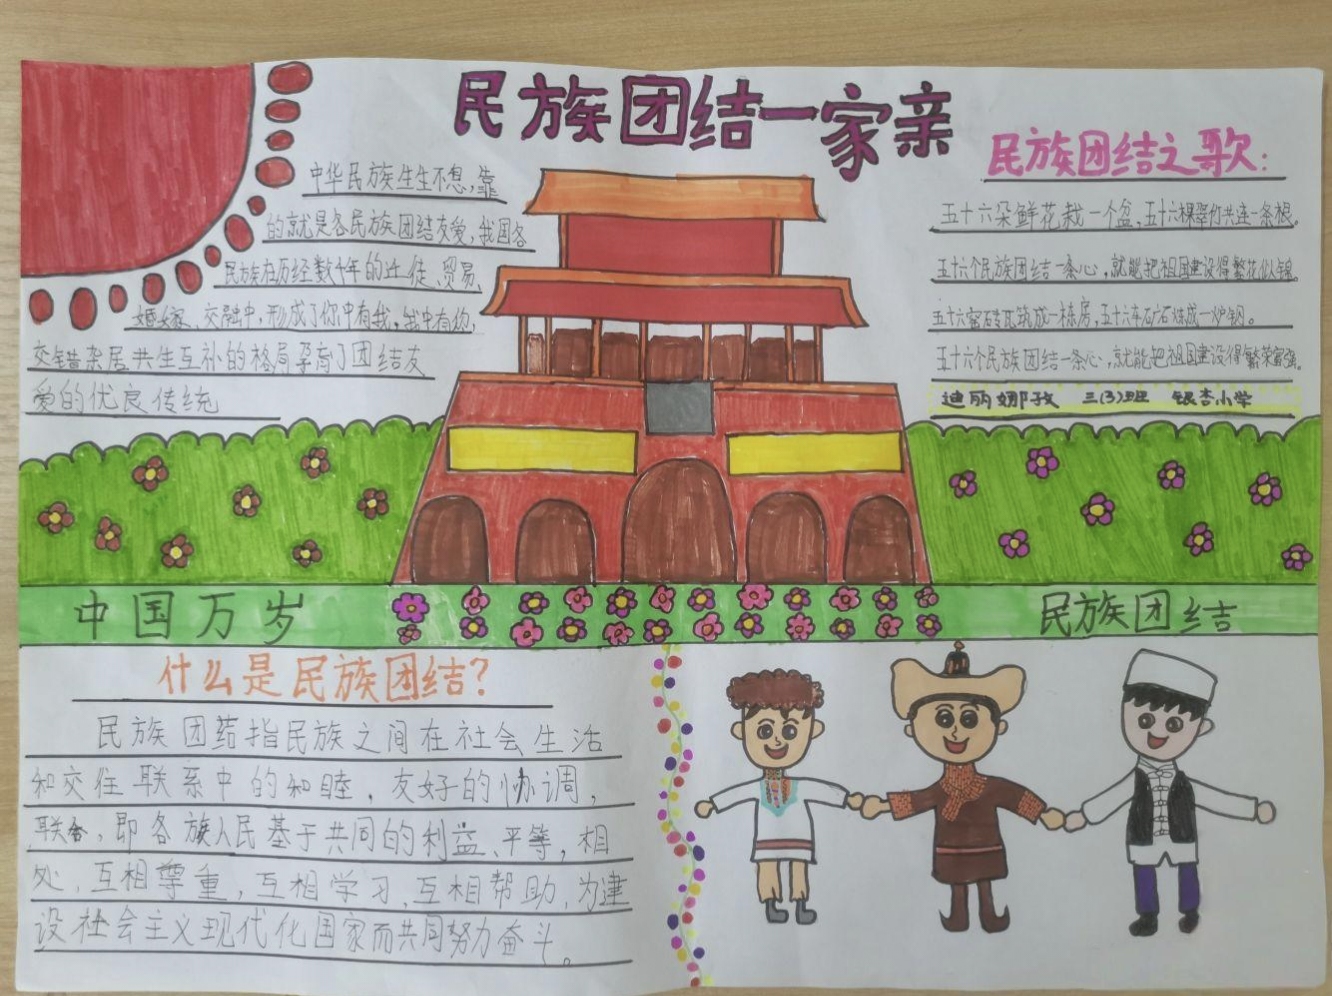 民族团结一家亲
中华民族生生不息,靠
的就是各民族团结友爱,我国各
民族在历经数千年的迁徙、贸易、
婚嫁、交融中,形成了你中有我,我中有你,
交错杂居共生互补的格局孕育了团结友
爱的优良传统
民族团结之歌:
五十六朵鲜花栽一个盆,五十六棵翠竹共连一条根。
五十六个民族团结一条心,就能把祖国建设得繁花似锦。
五十六窑砖瓦筑成一栋房,五十六车矿石炼成一炉钢。
五十六个民族团结一条心,就能把祖国建设得繁荣富强。
迪丽娜孜 三(3)班 银杏小学
中国万岁
民族团结
什么是民族团结?
民族团结指民族之间在社会生活
和交往联系中的和睦,友好的协调,
联合,即各族人民基于共同的利益、平等,相
处,互相尊重,互相学习,互相帮助,为建
设社会主义现代化国家而共同努力奋斗。